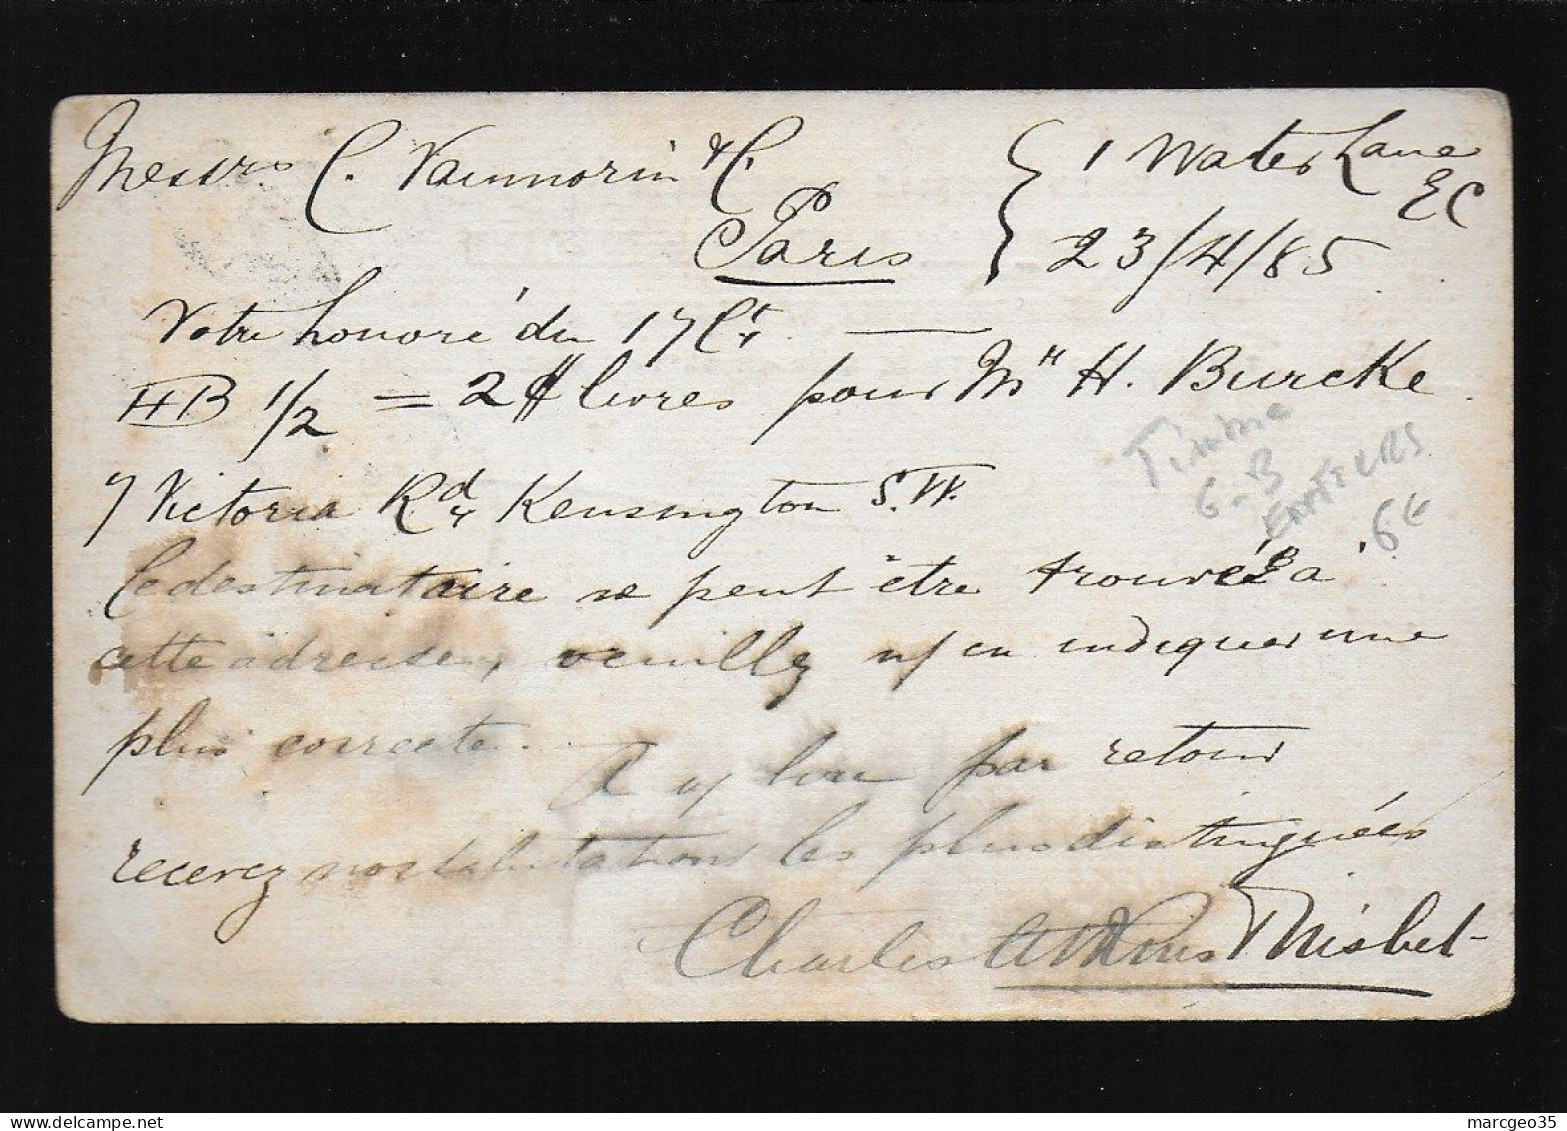 Messrs C. Vaumorin & C.
Paris
1 Water Lane
EC
23/4/85
Votre honoré du 17 Ct
HB 1/2 = 2 livres pour Mr H. Burcke
7 Victoria Rd Kensington S.W.
Le destinataire ne peut être trouvé à
cette adresse, veuillez n/ en indiquer une
plus correcte.
A v/ lire par retour
recevez nos salutations les plus distinguées
Charles Nisbet
Timbre
G-B
ENTIERS
6€
marcgeo35